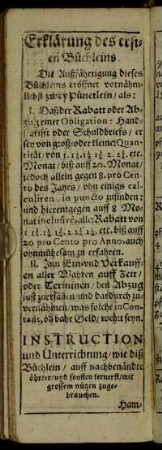 Erklärung des ersten
Büchleins.
Die Aufffährtigung dieses
Büchleins eröffnet vornähm-
lichst zwey Pünctlein/ als:
I. Das der Rabatt oder Ab-
zug einer Obligation: Hand-
schrifft oder Schuldbriefs/ er
sey von groß- oder kleiner Quan-
tität/ von
Monat/ biß auff 20. Monat/
jedoch allein gegen 8. pro Cento
des Jahrs/ ohn einigs cal-
culiren, in puncto zufinden:
und hierentgegen auff 8 Mo-
nat inclusivè halb: Rabatt von
etc. biß auff
20 pro Cento pro Anno, auch
ohnmühesam zu erfahren.
II. Im Ein- und Verkauff-
en aller Wahren auff Zeit/
oder Terminen, den Abzug
just zuersehen: und dardurch zu
vernähmen/ was solche in Con-
tant, oder bahr Geld/ wehrt seyn.
INSTRUCTION
und Unterrichtung/ wie diß
Büchlein/ auff nachbenändte
öhrter/ und sonsten fernerst/ mit
grossem nutzen zuge-
brauchen.
Ham-